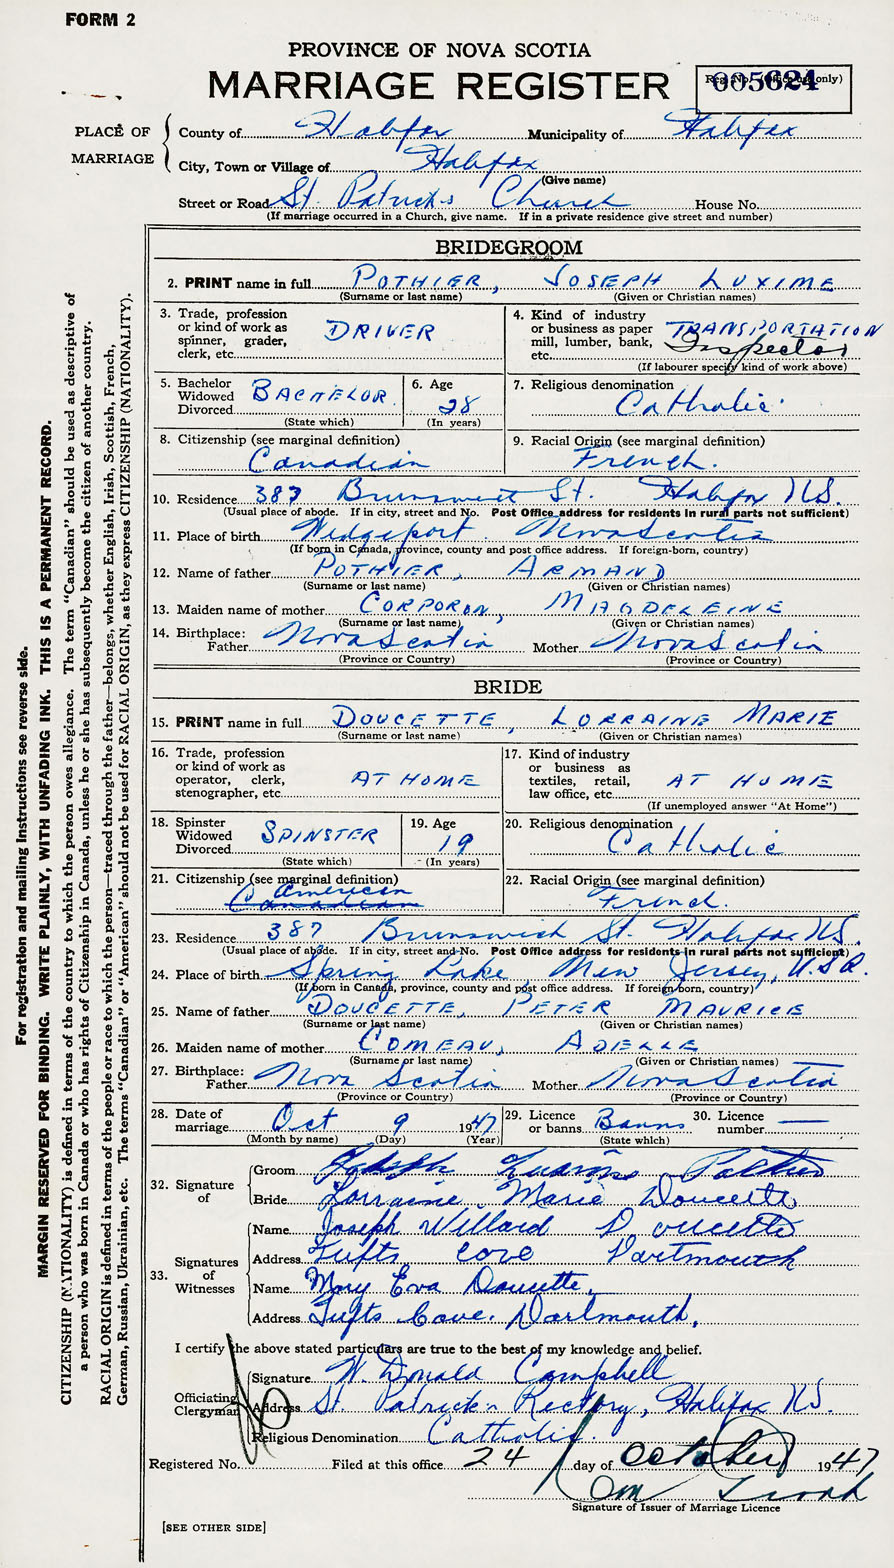 FORM 2
PROVINCE OF NOVA SCOTIA
MARRIAGE REGISTER
Reg. No. (Office use only)
005624
PLACE OF MARRIAGE
County of Halifax Municipality of Halifax
City, Town or Village of Halifax
(Give name)
Street or Road St. Patricks Church House No.
(If marriage occurred in a Church, give name. If in a private residence give street and number)
BRIDEGROOM
2. PRINT name in full POTHIER, JOSEPH LUXIME
(Surname or last name) (Given or Christian names)
3. Trade, profession or kind of work as spinner, grader, clerk, etc. DRIVER
4. Kind of industry or business as paper mill, lumber, bank, etc. TRANSPORTATION
Inspector
(If labourer specify kind of work above)
5. Bachelor Widowed Divorced BACHELOR
(State which)
6. Age 28
(In years)
7. Religious denomination Catholic
8. Citizenship (see marginal definition)
Canadian
9. Racial Origin (see marginal definition)
French.
10. Residence 387 Brunswick St. Halifax N.S.
(Usual place of abode. If in city, street and No. Post Office address for residents in rural parts not sufficient)
11. Place of birth Wedgeport. Nova Scotia
(If born in Canada, province, county and post office address. If foreign-born, country)
12. Name of father POTHIER, ARMAND
(Surname or last name) (Given or Christian names)
13. Maiden name of mother CORPORON, MAGDELEINE
(Surname or last name) (Given or Christian names)
14. Birthplace:
Father Nova Scotia Mother Nova Scotia
(Province or Country) (Province or Country)
BRIDE
15. PRINT name in full DOUCETTE, LORRAINE MARIE
(Surname or last name) (Given or Christian names)
16. Trade, profession or kind of work as operator, clerk, stenographer, etc. AT HOME
17. Kind of industry or business as textiles, retail, law office, etc. AT HOME
(If unemployed answer "At Home")
18. Spinster Widowed Divorced SPINSTER
(State which)
19. Age 19
(In years)
20. Religious denomination Catholic
21. Citizenship (see marginal definition)
American
Canadian
22. Racial Origin (see marginal definition)
French.
23. Residence 387 Brunswick St. Halifax N.S.
(Usual place of abode. If in city, street and No. Post Office address for residents in rural parts not sufficient)
24. Place of birth Spring Lake, New Jersey, U.S.A.
(If born in Canada, province, county and post office address. If foreign born, country)
25. Name of father DOUCETTE, PETER MAURICE
(Surname or last name) (Given or Christian names)
26. Maiden name of mother COMEAU, ADELLE
(Surname or last name) (Given or Christian names)
27. Birthplace:
Father Nova Scotia Mother Nova Scotia
(Province or Country) (Province or Country)
28. Date of marriage Oct 9 1947
(Month by name) (Day) (Year)
29. Licence or banns Banns
(State which)
30. Licence number —
32. Signature of
Groom Joseph Luxime Pothier
Bride Lorraine Marie Doucette
33. Signatures of Witnesses
Name Joseph Willard Doucette
Address Tufts Cove Dartmouth
Name Mary Eva Doucette.
Address Tufts Cove. Dartmouth.
I certify the above stated particulars are true to the best of my knowledge and belief.
Officiating Clergyman
Signature W. Donald Campbell
Address St. Patrick's Rectory, Halifax N.S.
Religious Denomination Catholic.
Registered No. Filed at this office 24 day of October 1947
Signature of Issuer of Marriage Licence
[SEE OTHER SIDE]
For registration and mailing instructions see reverse side.
MARGIN RESERVED FOR BINDING. WRITE PLAINLY, WITH UNFADING INK. THIS IS A PERMANENT RECORD.
CITIZENSHIP (NATIONALITY) is defined in terms of the country to which the person owes allegiance. The term "Canadian" should be used as descriptive of
a person who was born in Canada or who has rights of Citizenship in Canada, unless he or she has subsequently become the citizen of another country.
RACIAL ORIGIN is defined in terms of the people or race to which the person—traced through the father—belongs, whether English, Irish, Scottish, French,
German, Russian, Ukrainian, etc. The terms "Canadian" or "American" should not be used for RACIAL ORIGIN, as they express CITIZENSHIP (NATIONALITY).